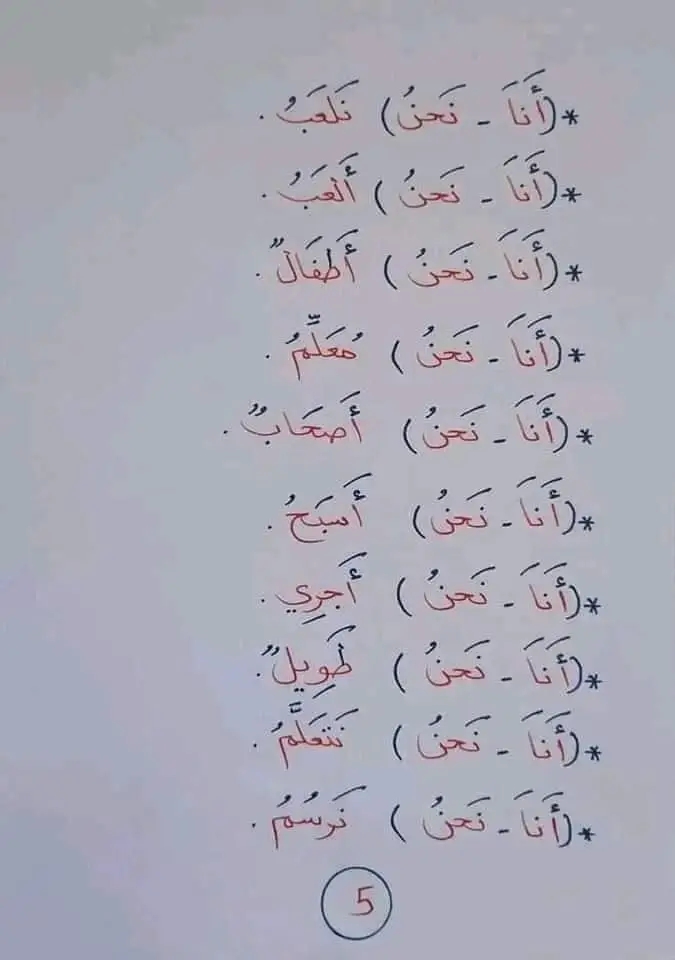 *(أَنَا - نَحنُ) نَلعَبُ.
*(أَنَا - نَحنُ) أَلعَبُ.
*(أَنَا - نَحنُ) أَطفَالٌ.
*(أَنَا - نَحنُ) مُعَلِّمُ.
*(أَنَا - نَحنُ) أَصحَابٌ.
*(أَنَا - نَحنُ) أَسبَحُ.
*(أَنَا - نَحنُ) أَجرِي.
*(أَنَا - نَحنُ) طَوِيلٌ.
*(أَنَا - نَحنُ) نَتَعَلَّمُ.
*(أَنَا - نَحنُ) نَرسُمُ.
5